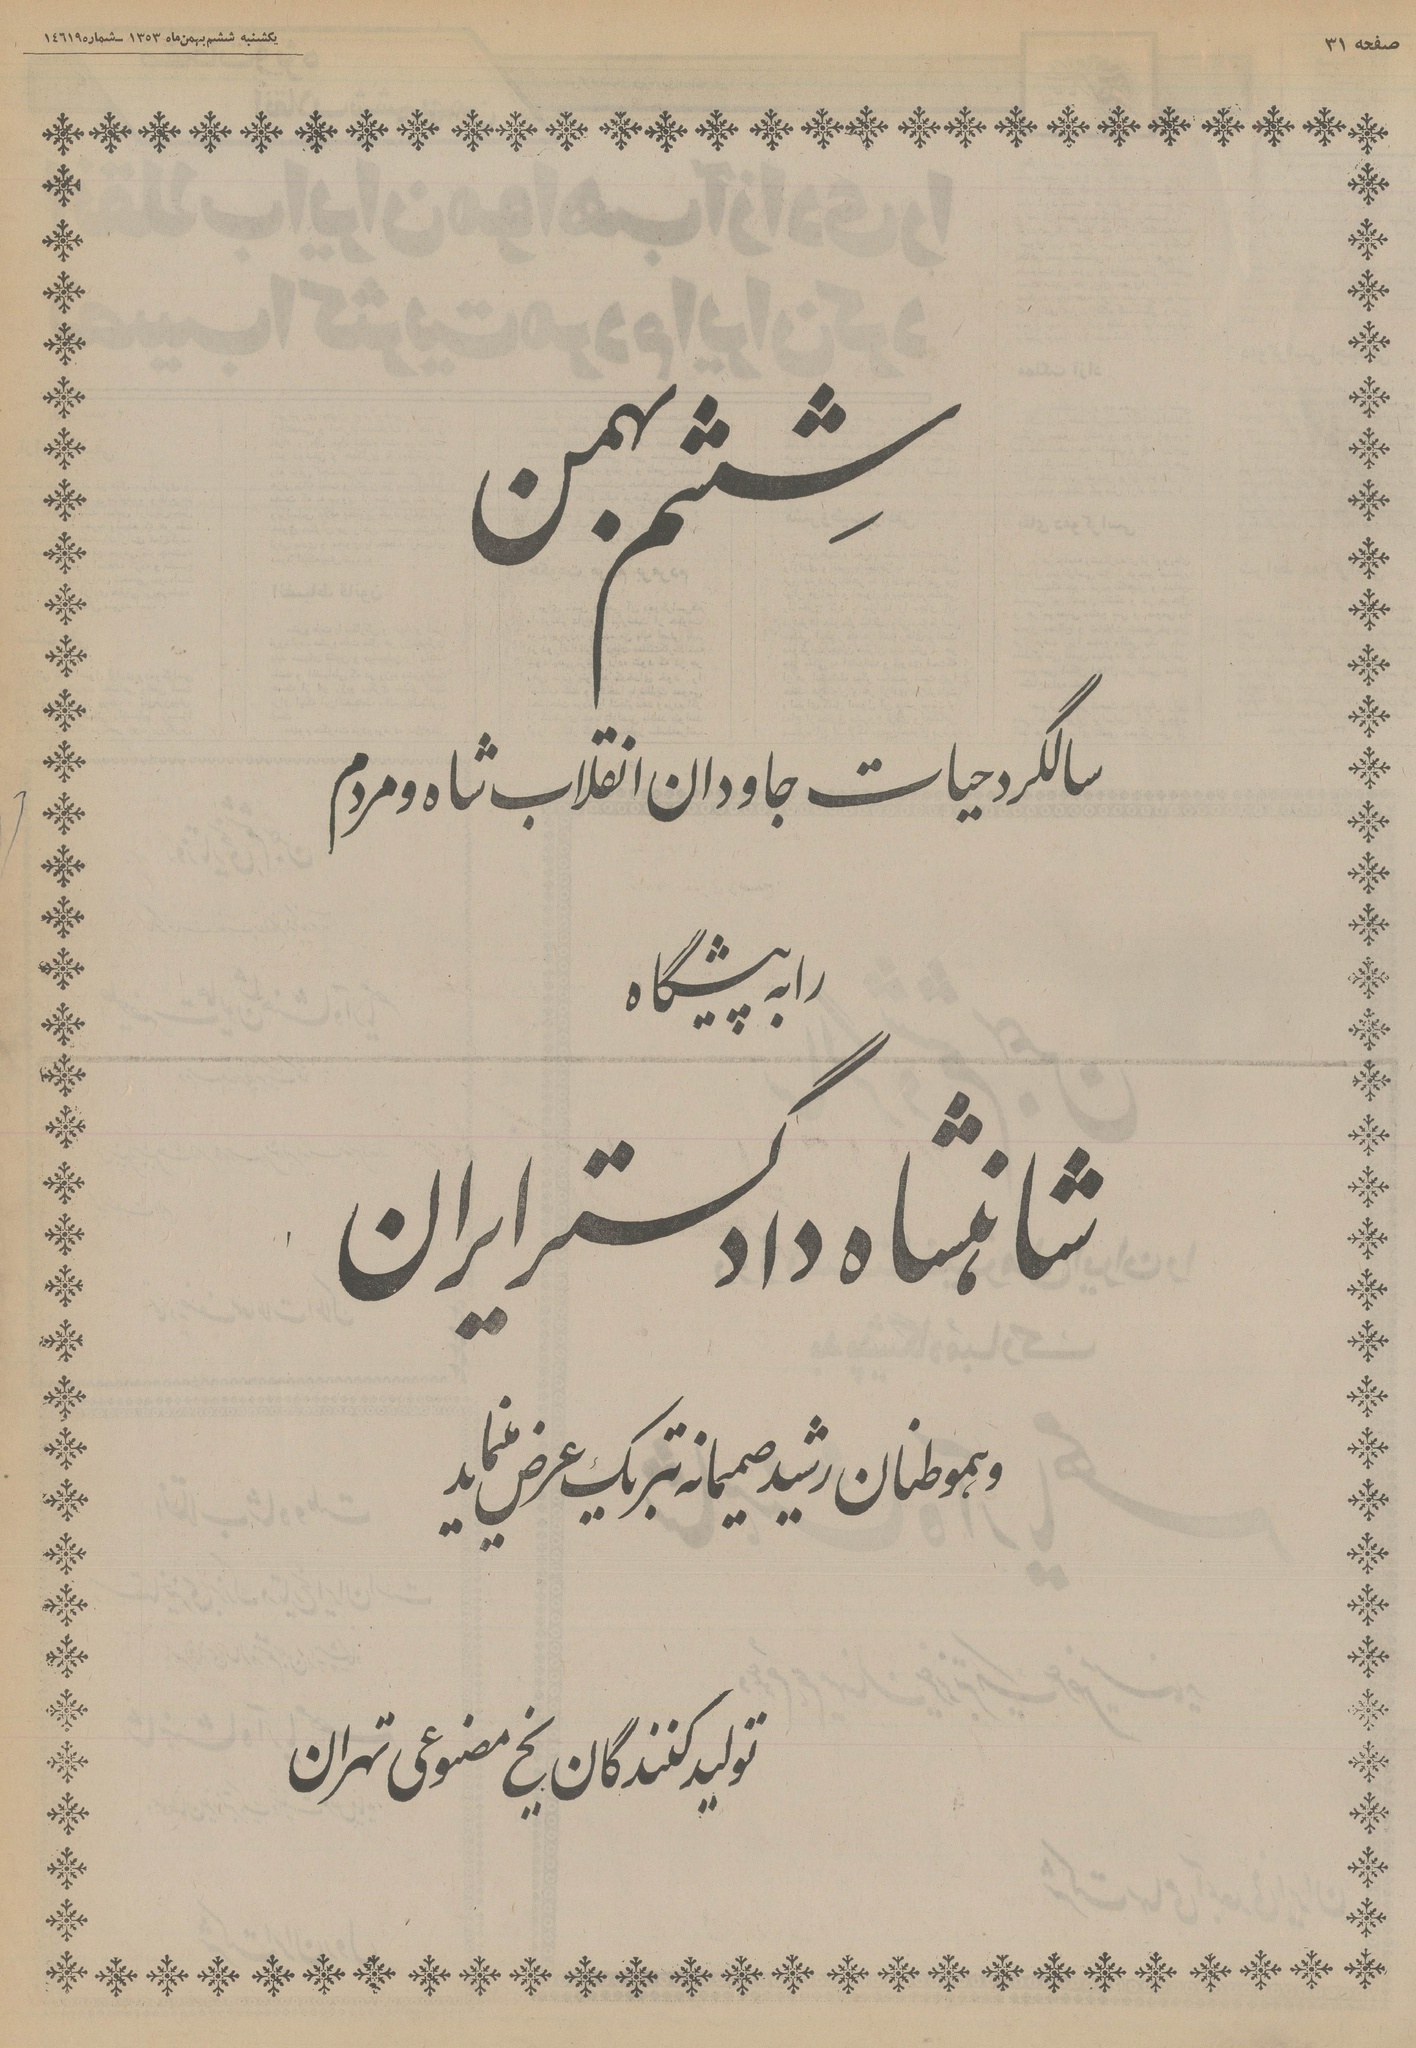 صفحه ۳۱
یکشنبه ششم بهمن ماه ۱۳۵۳ ـ شماره ۱٤٦۱۹
ششم بهمن
سالگرد حیات جاودان انقلاب شاه و مردم
را به پیشگاه
شاهنشاه دادگستر ایران
و هموطنان رشید صمیمانه تبریک عرض مینماید
تولید کنندگان یخ مصنوعی تهران